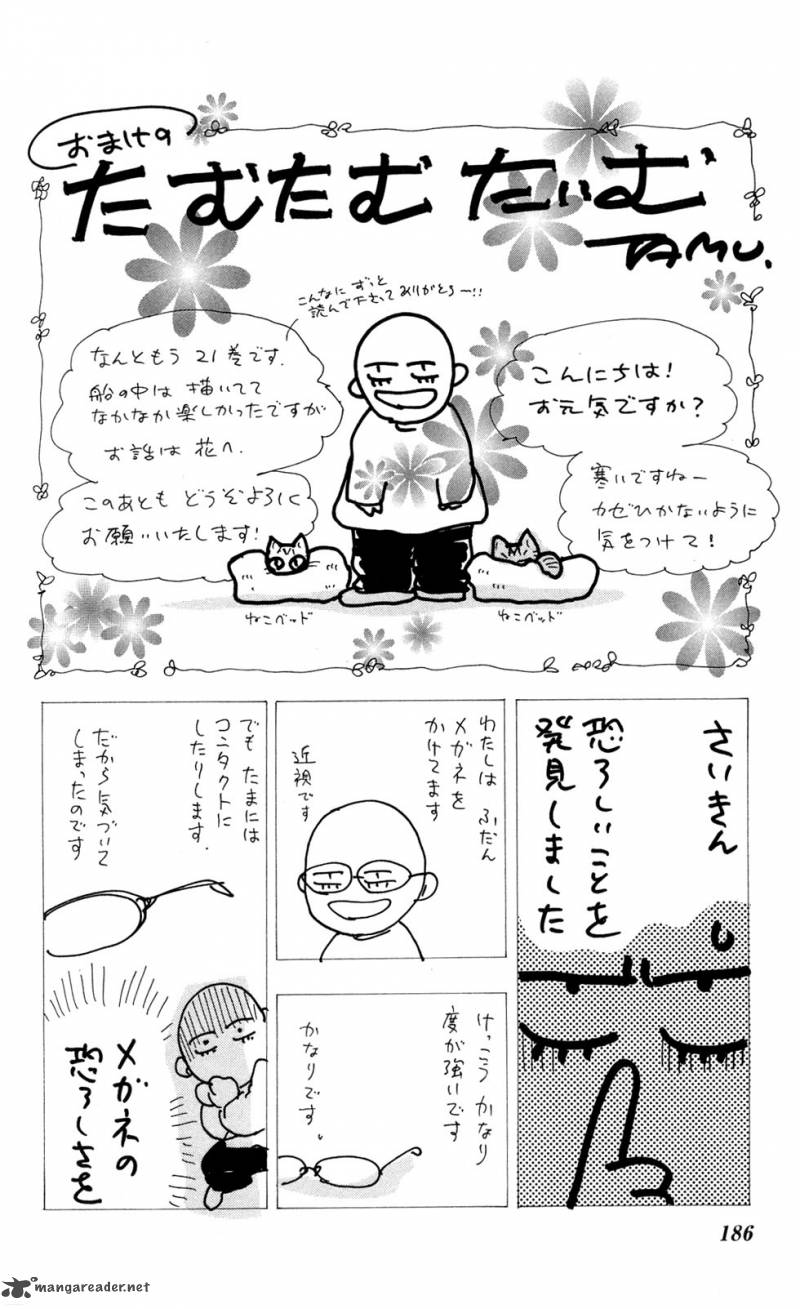 おまけの
たむたむ たいむ
TAMU.
こんにちは!
お元気ですか?
寒いですねー
カゼひかないように
気をつけて!
こんなに ずっと
読んで下さってありがとう〜!!
なんともう 21巻です.
船の中は 描いてて
なかなか楽しかったですが
お話は 花へ.
このあとも どうぞよろしく
お願いいたします!
ねこベッド
ねこベッド
さいきん
恐ろしいことを
発見しました
わたしは ふだん
メガネを
かけてます
近視です
けっこう かなり
度が強いです
かなりです。
でも たまには
コンタクトに
したりします.
だから気づいて
しまったのです
メガネの
恐ろしさを
186
mangareader.net